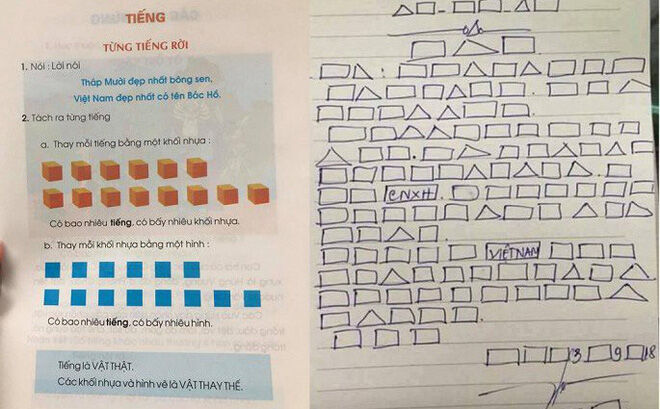 TIẾNG
TỪNG TIẾNG RỜI
1. Nói : Lời nói
Tháp Mười đẹp nhất bông sen,
Việt Nam đẹp nhất có tên Bác Hồ.
2. Tách ra từng tiếng
a. Thay mỗi tiếng bằng một khối nhựa :
Có bao nhiêu tiếng, có bấy nhiêu khối nhựa.
b. Thay mỗi khối nhựa bằng một hình :
Có bao nhiêu tiếng, có bấy nhiêu hình.
Tiếng là VẬT THẬT.
Các khối nhựa và hình vẽ là VẬT THAY THẾ.
CNXH
VIỆT NAM
3 9 18